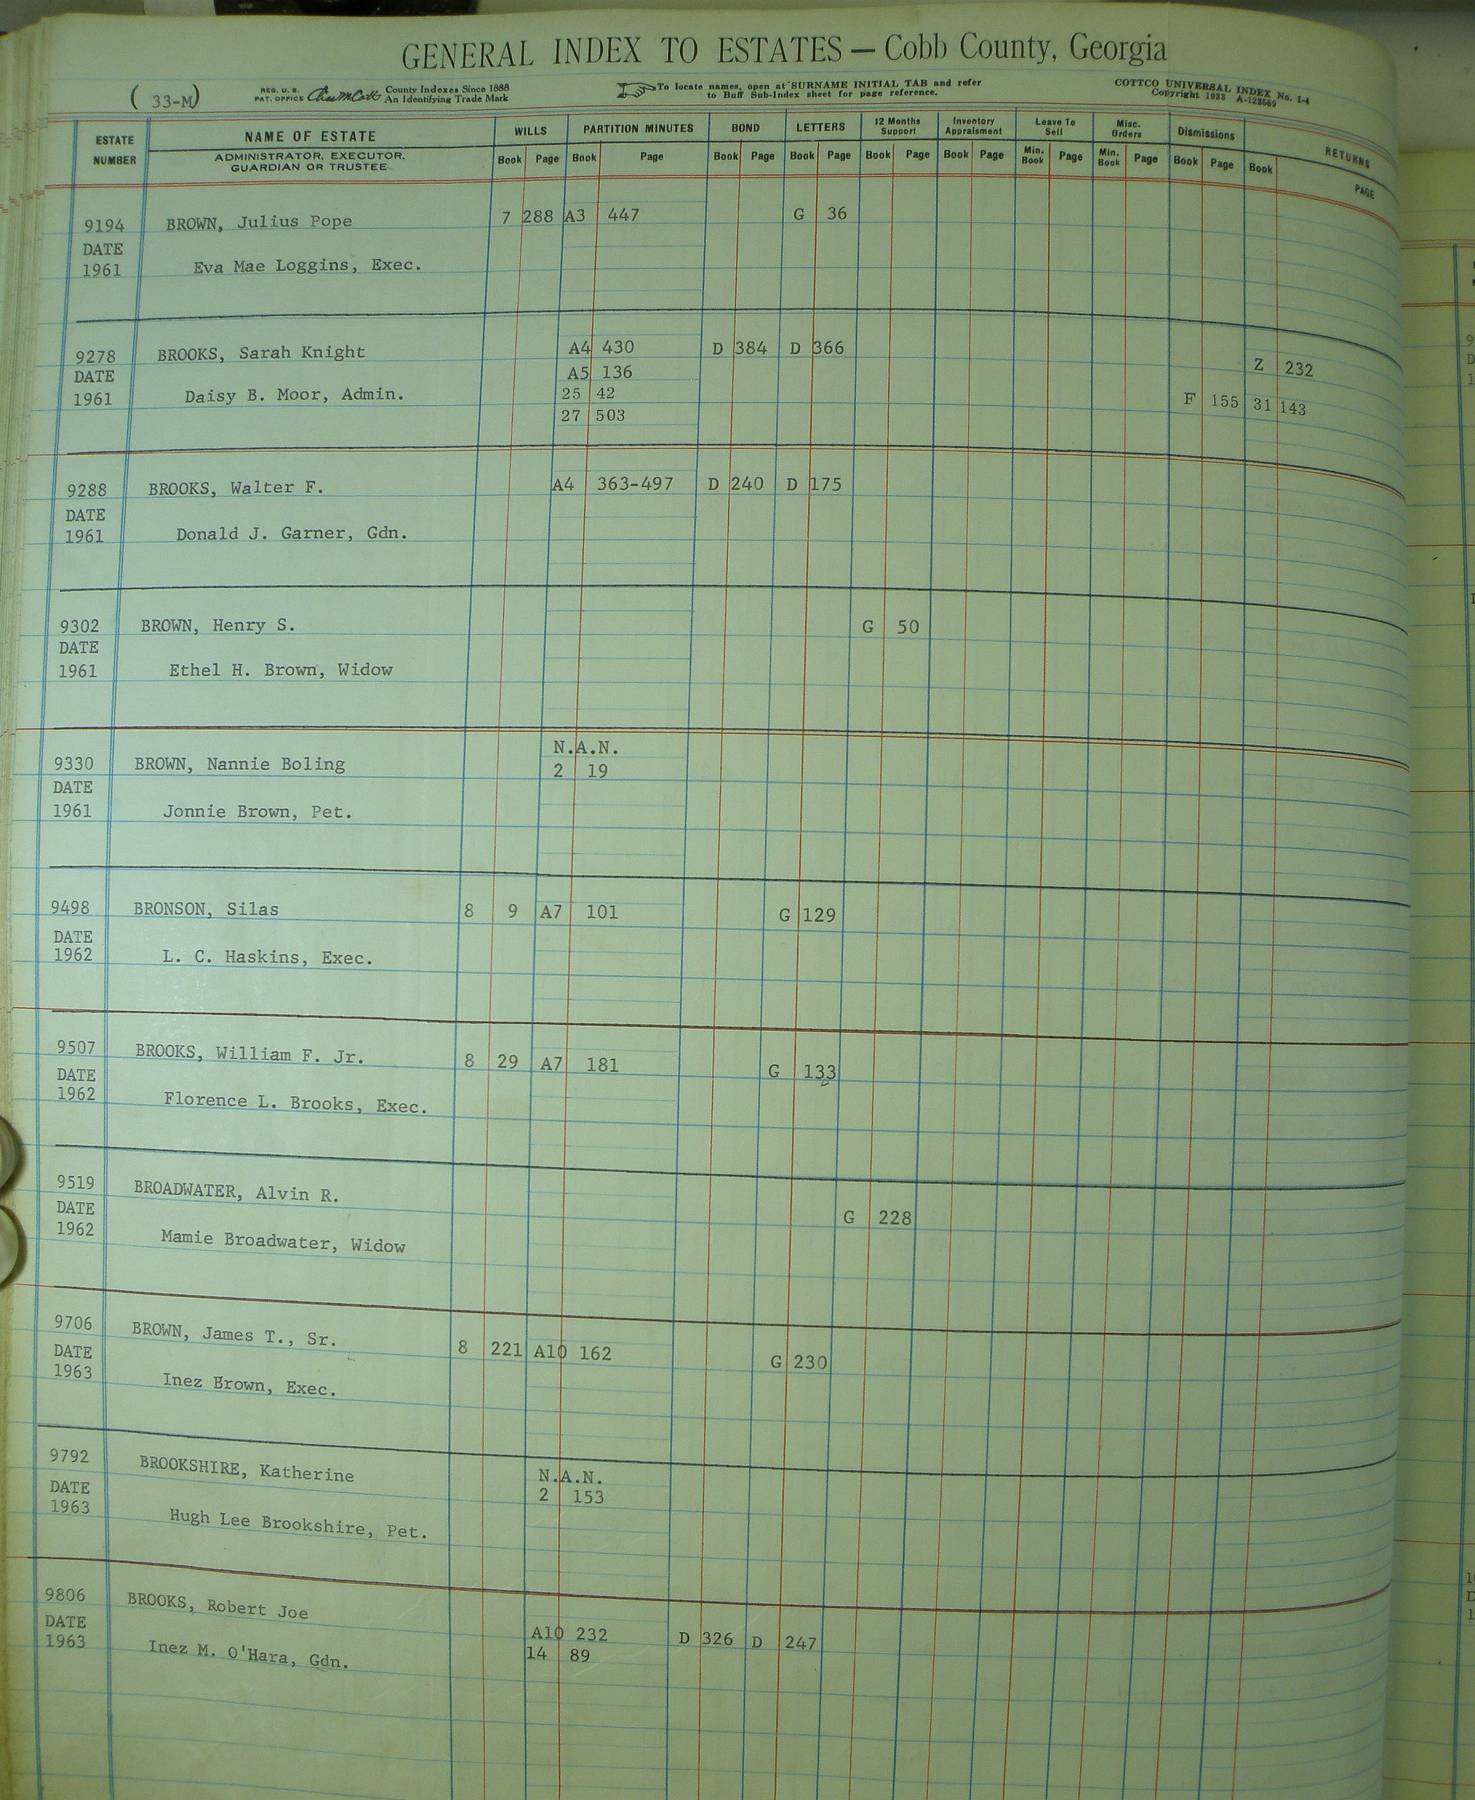 GENERAL INDEX TO ESTATES — Cobb County, Georgia
( 33-M)
REG. U. S. PAT. OFFICE Chas M Cott County Indexes Since 1888 An Identifying Trade Mark
To locate names, open at SURNAME INITIAL TAB and refer to Buff Sub-Index sheet for page reference.
COTTCO UNIVERSAL INDEX No. 1-4
Copyright 1923 A-122569
ESTATE NUMBER NAME OF ESTATE WILLS PARTITION MINUTES BOND LETTERS 12 Months Support Inventory Appraisment Leave To Sell Misc. Orders Dismissions RETURNS
ADMINISTRATOR, EXECUTOR, GUARDIAN OR TRUSTEE Book Page Book Page Book Page Book Page Book Page Book Page Min. Book Page Min. Book Page Book Page Book PAGE
9194 BROWN, Julius Pope 7 288 A3 447 G 36
DATE
1961 Eva Mae Loggins, Exec.
9278 BROOKS, Sarah Knight A4 430 D 384 D 366 Z 232
DATE A5 136
1961 Daisy B. Moor, Admin. 25 42 F 155 31 143
27 503
9288 BROOKS, Walter F. A4 363-497 D 240 D 175
DATE
1961 Donald J. Garner, Gdn.
9302 BROWN, Henry S. G 50
DATE
1961 Ethel H. Brown, Widow
N.A.N.
9330 BROWN, Nannie Boling 2 19
DATE
1961 Jonnie Brown, Pet.
9498 BRONSON, Silas 8 9 A7 101 G 129
DATE
1962 L. C. Haskins, Exec.
9507 BROOKS, William F. Jr. 8 29 A7 181 G 133
DATE
1962 Florence L. Brooks, Exec.
9519 BROADWATER, Alvin R. G 228
DATE
1962 Mamie Broadwater, Widow
9706 BROWN, James T., Sr. 8 221 A10 162 G 230
DATE
1963 Inez Brown, Exec.
9792 BROOKSHIRE, Katherine N.A.N.
DATE 2 153
1963 Hugh Lee Brookshire, Pet.
9806 BROOKS, Robert Joe
DATE A10 232 D 326 D 247
1963 Inez M. O'Hara, Gdn. 14 89